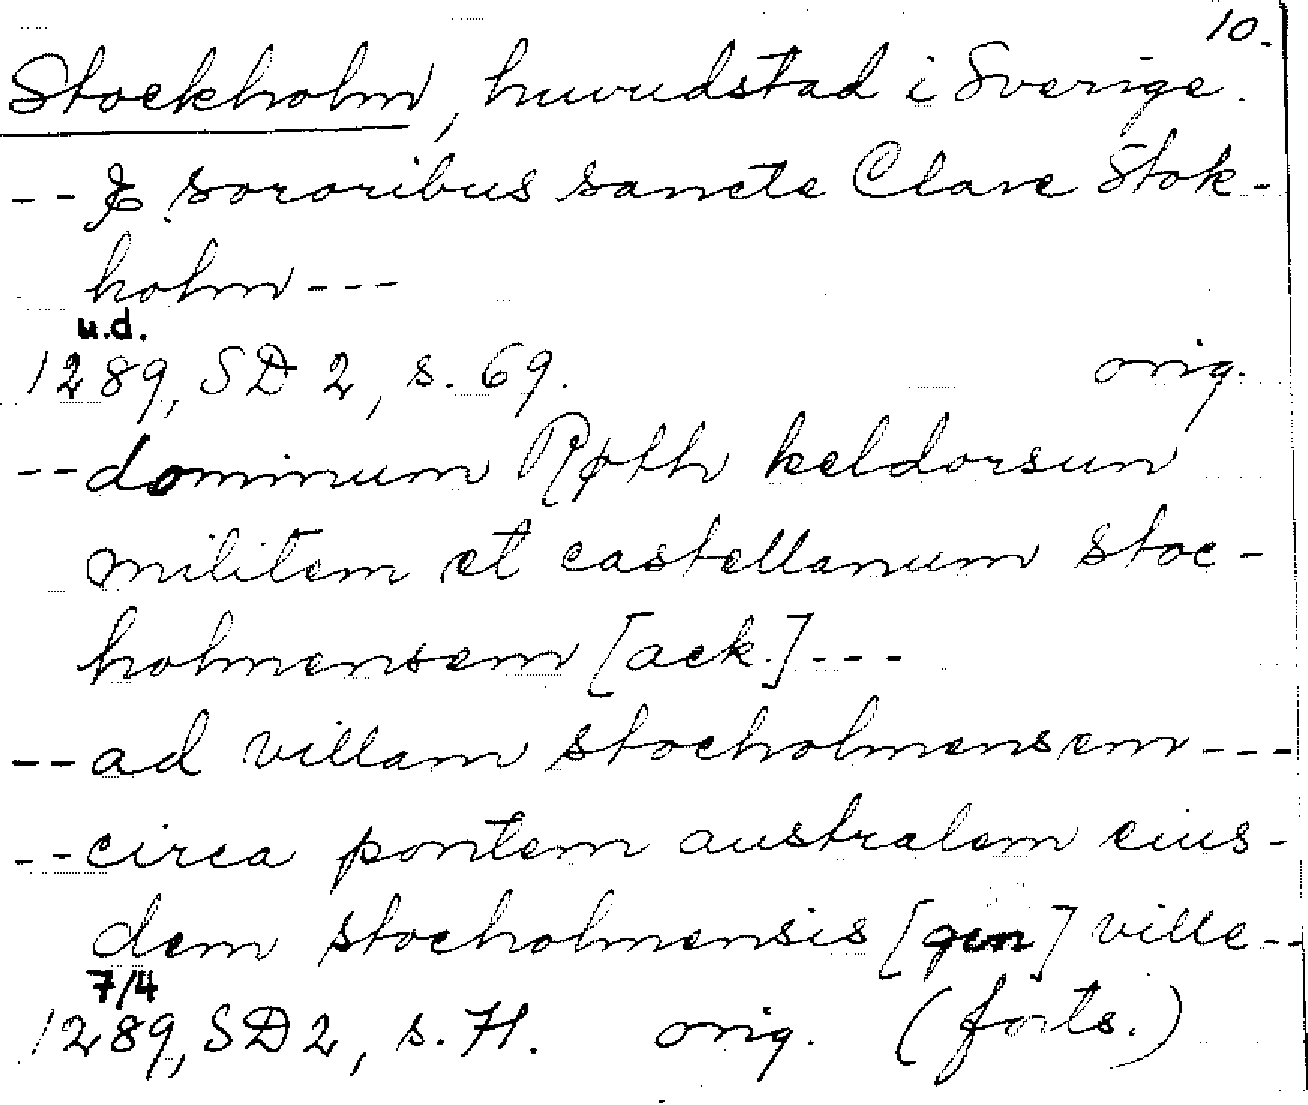 10.
Stockholm, huvudstad i Sverige.
-- & sororibus sancte Clare Stok-
holm ---
u.d.
1289, SD 2, s. 69. orig.
-- dominum Røth keldorsun
militem et castellanum stoc-
holmensem [ack.] ---
-- ad villam stocholmensem ---
-- circa pontem australem eius-
dem stocholmensis [gen] ville --
7/4
1289, SD 2, s. 71. orig. (forts.)